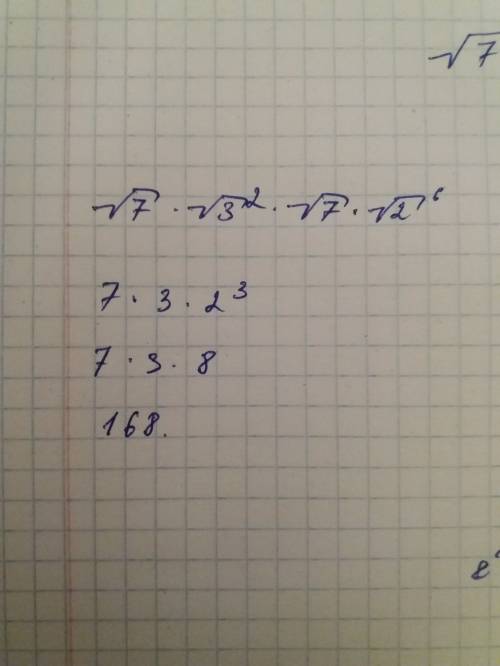 √7
√7 · √3² · √7 · √2⁶
7 · 3 · 2³
7 · 3 · 8
168.
8